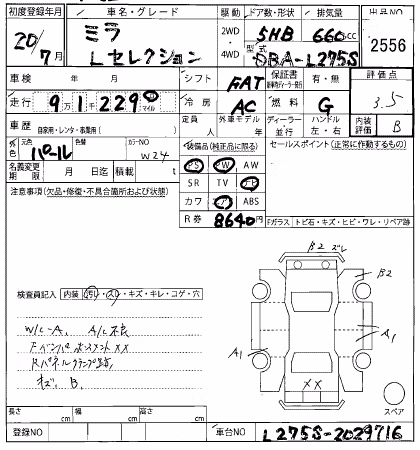 初度登録年月 車名・グレード 駆動 ドア数・形状 排気量 出品NO
20/7月 ミラ Lセレクション 2WD・4WD 5HB 660cc 2556
型式 DBA-L275S
車検 年 月 シフト FAT 保証書 有・無 評価点
走行 9万1229 マイル 冷房 AC 燃料 G 3.5
車歴 自家用・レンタ・事業用( ) 外車モデル 年 ディーラー 並行 ハンドル 左・右 内装評価 B
外色 元色 パール 色替 カラーNO W24
装備品(純正品に限る) セールスポイント(正常に作動するもの)
名義変更期限 月 日迄 積載 t
PS PW AW
SR TV ナビ
カワ エアB ABS
R券 8640円
注意事項(欠品・修復・不具合箇所および状態)
Fガラス トビ石・キズ・ヒビ・ワレ・リペア跡
β2 ズレ
β2
A1
A1
XX
スペア
検査員記入 内装 ヨゴレ・スレ・キズ・キレ・コゲ・穴
W/C-A、A/C不良
キズ、B、
長さ cm 幅 cm 高さ cm
登録NO 車台NO L275S-2029716